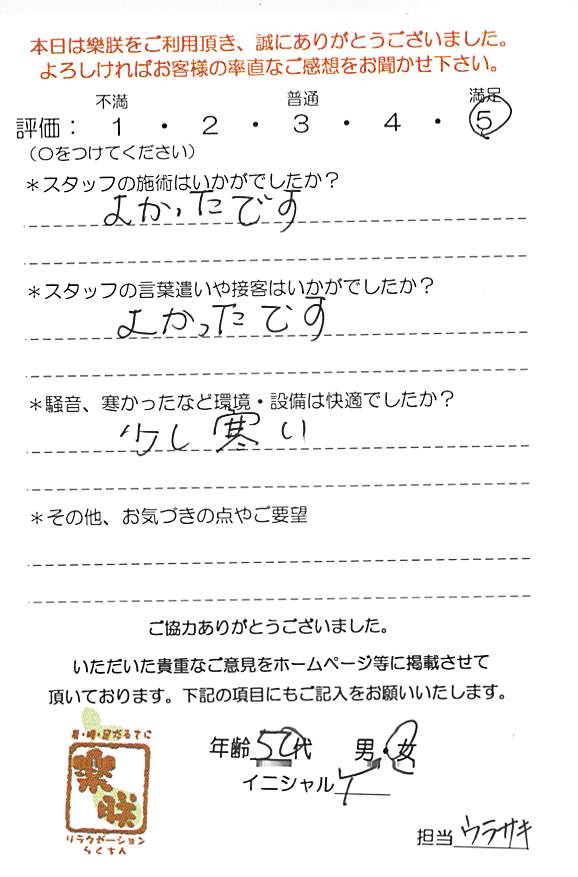 本日は樂朕をご利用頂き、誠にありがとうございました。
よろしければお客様の率直なご感想をお聞かせ下さい。
不満 普通 満足
評価： 1 ・ 2 ・ 3 ・ 4 ・ 5
（○をつけてください）
＊スタッフの施術はいかがでしたか？
よかったです
＊スタッフの言葉遣いや接客はいかがでしたか？
よかったです
＊騒音、寒かったなど環境・設備は快適でしたか？
少し寒い
＊その他、お気づきの点やご要望
ご協力ありがとうございました。
いただいた貴重なご意見をホームページ等に掲載させて
頂いております。下記の項目にもご記入をお願いいたします。
年齢 50代 男・女
イニシャル Y
肩・腰・足だるてに
樂朕
リラクゼーション
らくちん
担当 ウラサキ